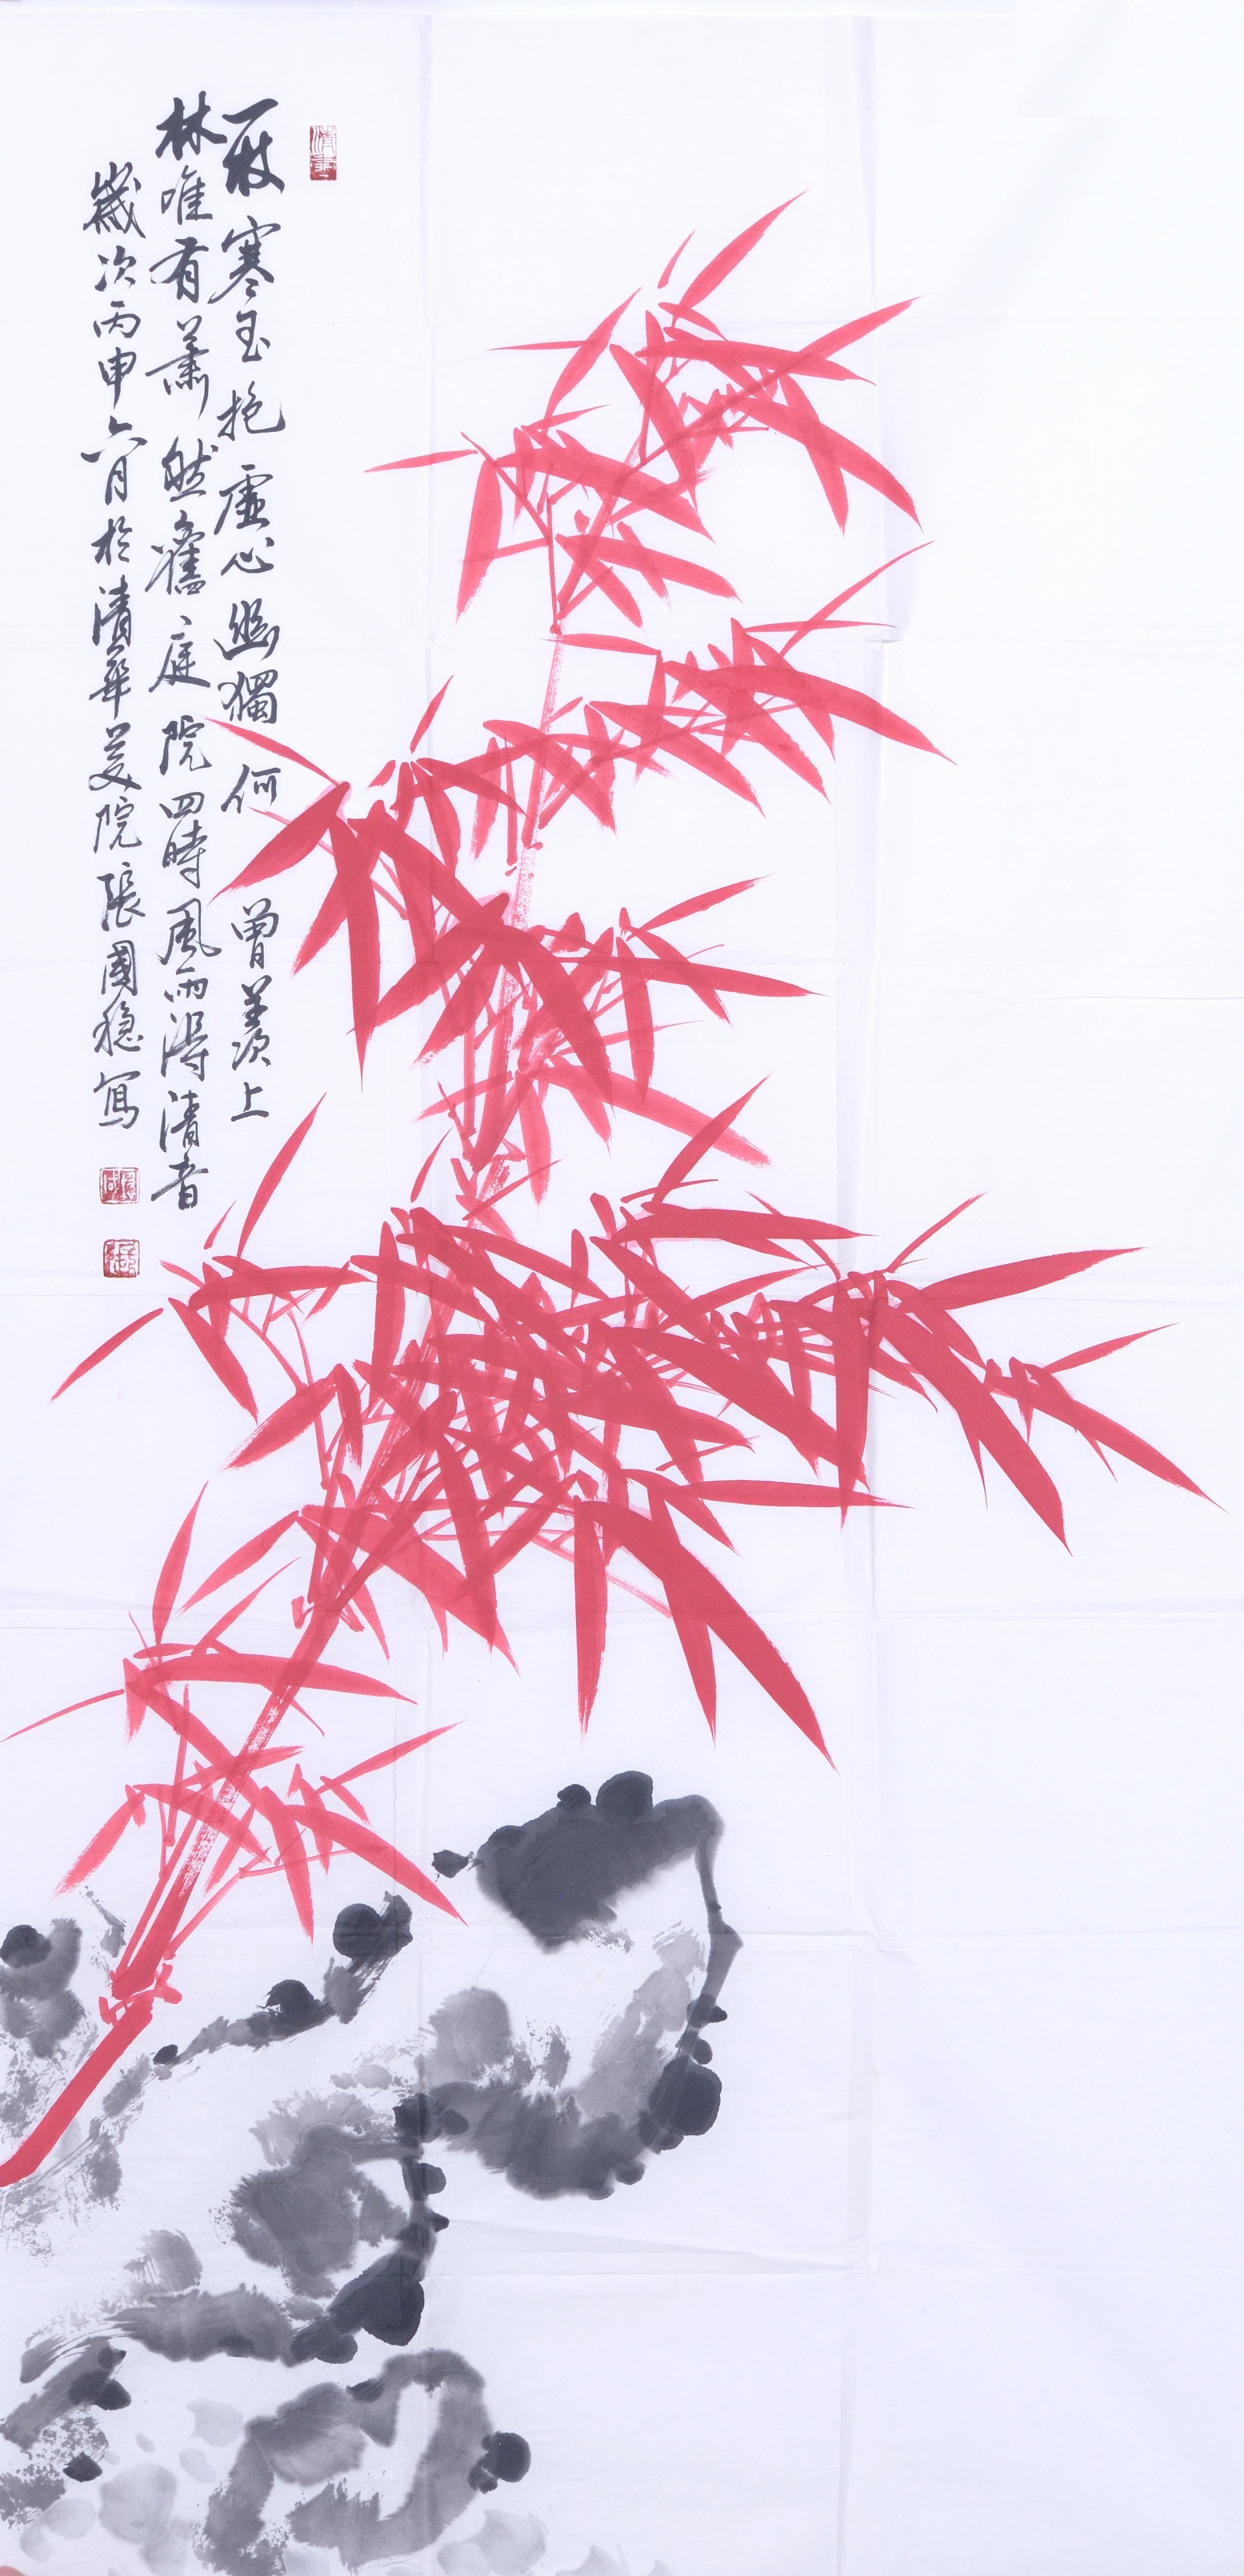 一枝寒玉抱虚心幽獨何曾羨上
林唯有蕭然舊庭院四時風雨得清音
歲次丙申六月於清華美院張國稳寫